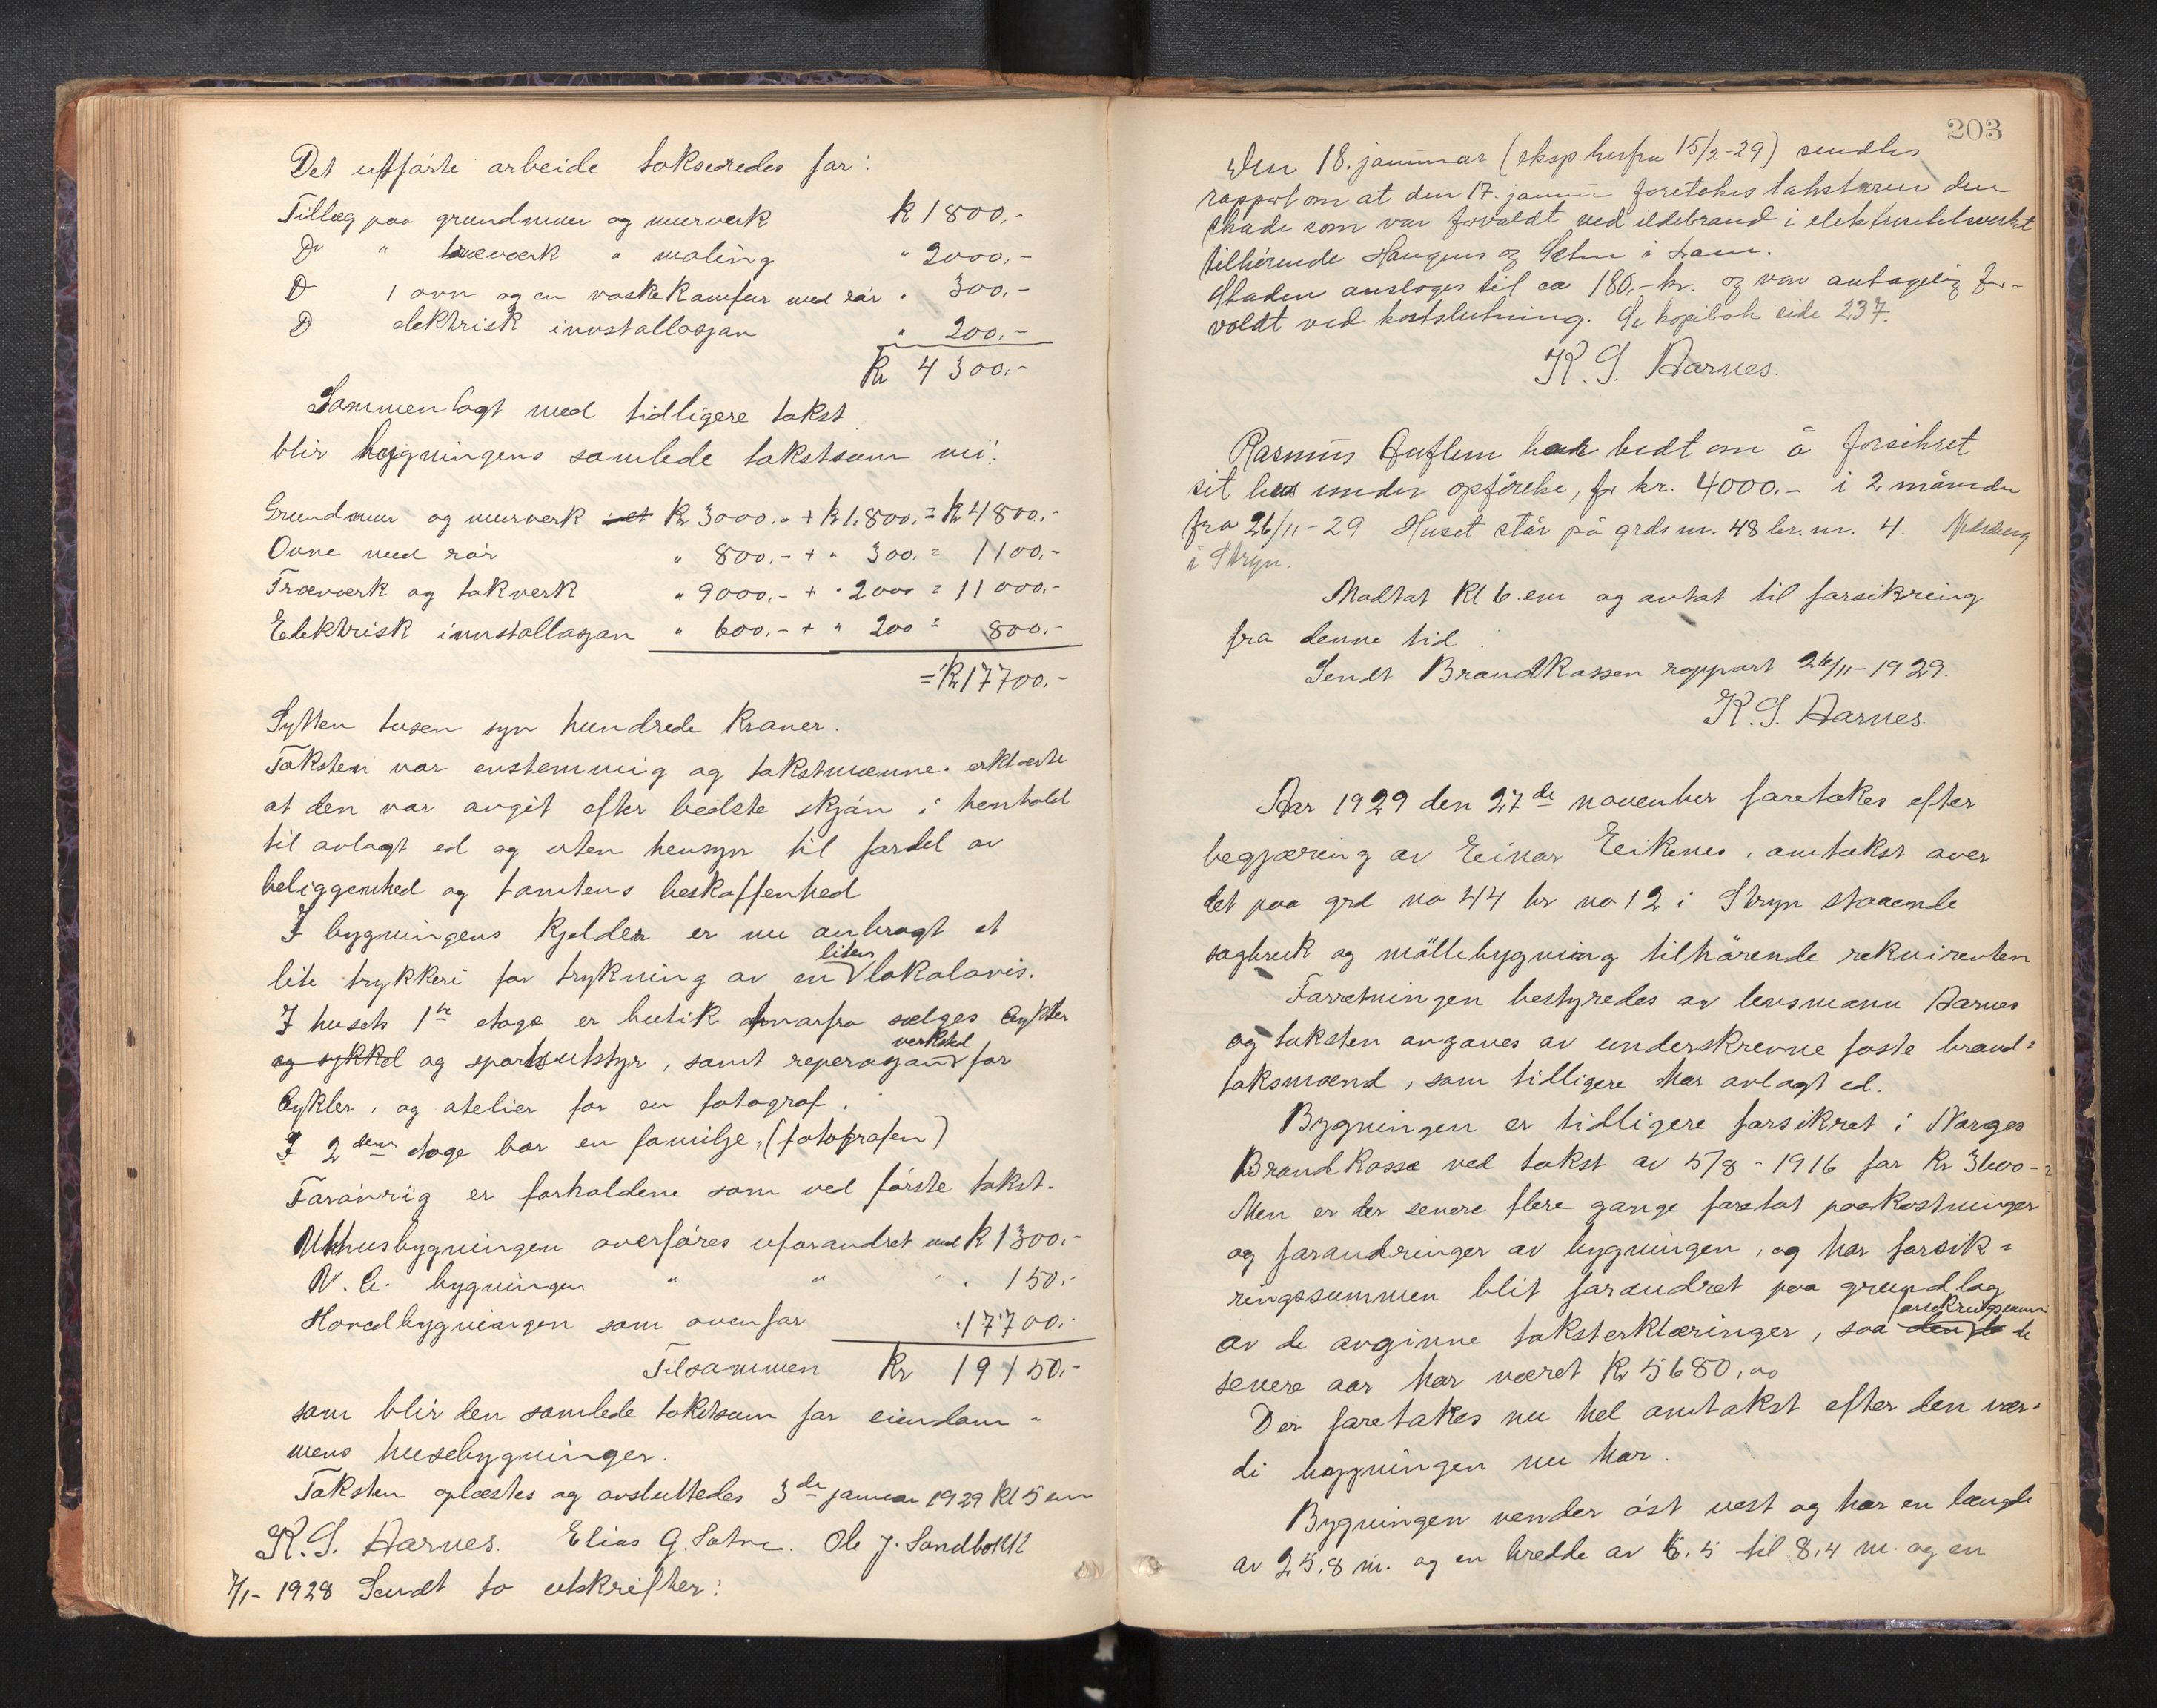 Det utførte arbeide takseredes for:
Tillæg paa grundmur og murverk K 1800,-
Do " træverk " maling " 2000,-
D 1 ovn og en vaskekamfur med rør " 300,-
D elektrisk innstallasjon " 200,-
Kr 4300,-
Sammenlagt med tidligere takst
blir bygningens samlede takstsum nu:
Grundmur og murverk Kr 3000,- + Kr 1,800,- = Kr 4800,-
Ovne med rør " 800,- + " 300,- = 1100,-
Træverk og takverk " 9000,- + " 2000 = 11000,-
Elektrisk innstallasjon " 600,- + " 200 = 800,-
= Kr 17700,-
Sytten tusen syv hundrede kroner.
Taksten var enstemmig og takstmænne erklærte
at den var avgit efter bedste skjøn i henhold
til avlagt ed og uten hensyn til fordel av
beliggenhed og tomtens beskaffenhed
I bygningens kjelder er nu anbragt et
lite trykkeri for trykning av en liten lokalavis.
I husets 1te etage er butik hvorfra sælges Cykler
og sykkel og sportsutstyr, samt reperasjons verksted for
Cykler, og atelier for en fotograf.
I 2den etage bor en familje, (fotografen)
Forøvrig er forholdene som ved første takst.
Uthusbygningen overføres uforandret med K 1300,-
V. C. bygningen " " " 150,-
Hovedbygningen som ovenfor " 17700,-
Tilsammen Kr 19150,-
som blir den samlede takstsum for eiendom-
mens husebygninger.
Taksten oplæstes og avsluttedes 3de januar 1929 Kl 5 em
K. S. Aarnes. Elias G. Sætre. Ole J. Sandbakk
7/1- 1928 Sendt to utskrifter:
203
Den 18. januar (eksp. herfra 15/2-29) sendtes
rapport om at den 17. januar foretokes takst over den
skade som var forvoldt ved ildebrand i elektricitetsverket
tilhørende Haugens og Sætre i
Skaden ansloges til ca 180,- kr. og var antagelig for-
voldt ved kortslutning. Se kopibok side 237.
K. S. Aarnes.
Rasmus hade bedt om å forsikret
sit hus under opførelse, for kr. 4000,- i 2 måneder
fra 26/11-29 Huset står på grdsnr. 48 br. nr. 4.
i Stryn.
Modtat Kl 6 em og antat til forsikring
fra denne tid.
Sendt Brandkassen rapport 26/11-1929.
K. S. Aarnes.
Aar 1929 den 27de november foretokes efter
begjæring av Einar Eikenes, omtakst over
det paa grd no 44 br no 12 i Stryn staaende
sagbruk og möllebygning tilhørende rekvirenten
Forretningen bestyredes av lensmann Aarnes
og taksten avgaves av underskrevne faste brand=
taksmænd, som tidligere har avlagt ed.
Bygningen er tidligere forsikret i Norges
Brandkasse ved takst av 5/8-1916 for Kr 3600-
Men er der senere flere gange foretat paakostninger
og forandringer av bygningen, og har forsik=
ringssummen blit forandret paa grundlag
av de avginne taksterklæringer, saa forsikringssum de
senere aar har været Kr 5680,00
Der foretakes nu hel omtakst efter den vær-
di bygningen nu har.
Bygningen vender øst vest og har en længde
av 25,8 m. og en bredde av 6,5 til 8,4 m. og en